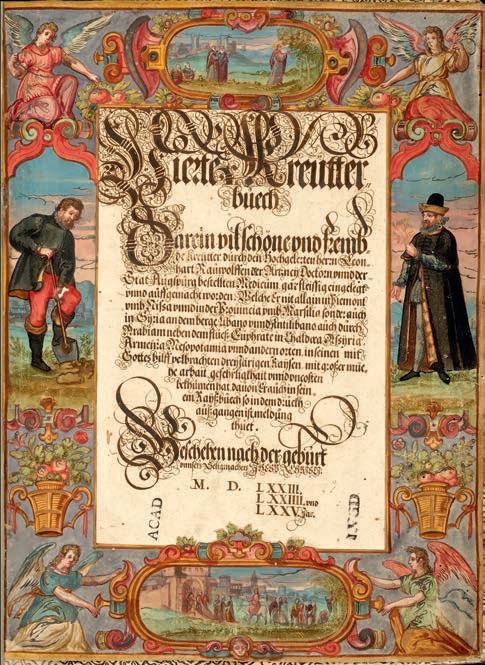 Vierte Kreutter
büech
Darein vil schöne vnd fremb
de Kreutter durch den Hochgelerten herrn Leon
hart Rauwolffen der Artzney Doctorn vnnd der
Stat Augspurg bestellten Medicum gar fleissig eingelegt
vnnd aufgemacht worden. Welche Er nit allain jn Piemont
vmb Nissa vnnd jn der Prouincia vmb Marsilio sonder auch
in Syria an dem berge Libano vnnd Antilibano auch durch
Arabiam neben dem fluß Euphrate in Chaldæa Assyria
Armenia Mesopotamia vnnd andern orten. in seinen mit
Gottes hilff volbrachten dreyjärigen Raysen. mit grosser müe
he arbait gefehrlichait vnnd vncosten
bekhumen hat. dauon Er auch in sein
em Rayßbüech so in dem druckh
außgangen ist meldung
thuet.
Geschehen nach der gebürt
vnnsers Seligmachers
M. D. LXXIII.
LXXIIII. vnd
LXXV. Jar.
ACAD
LVGD